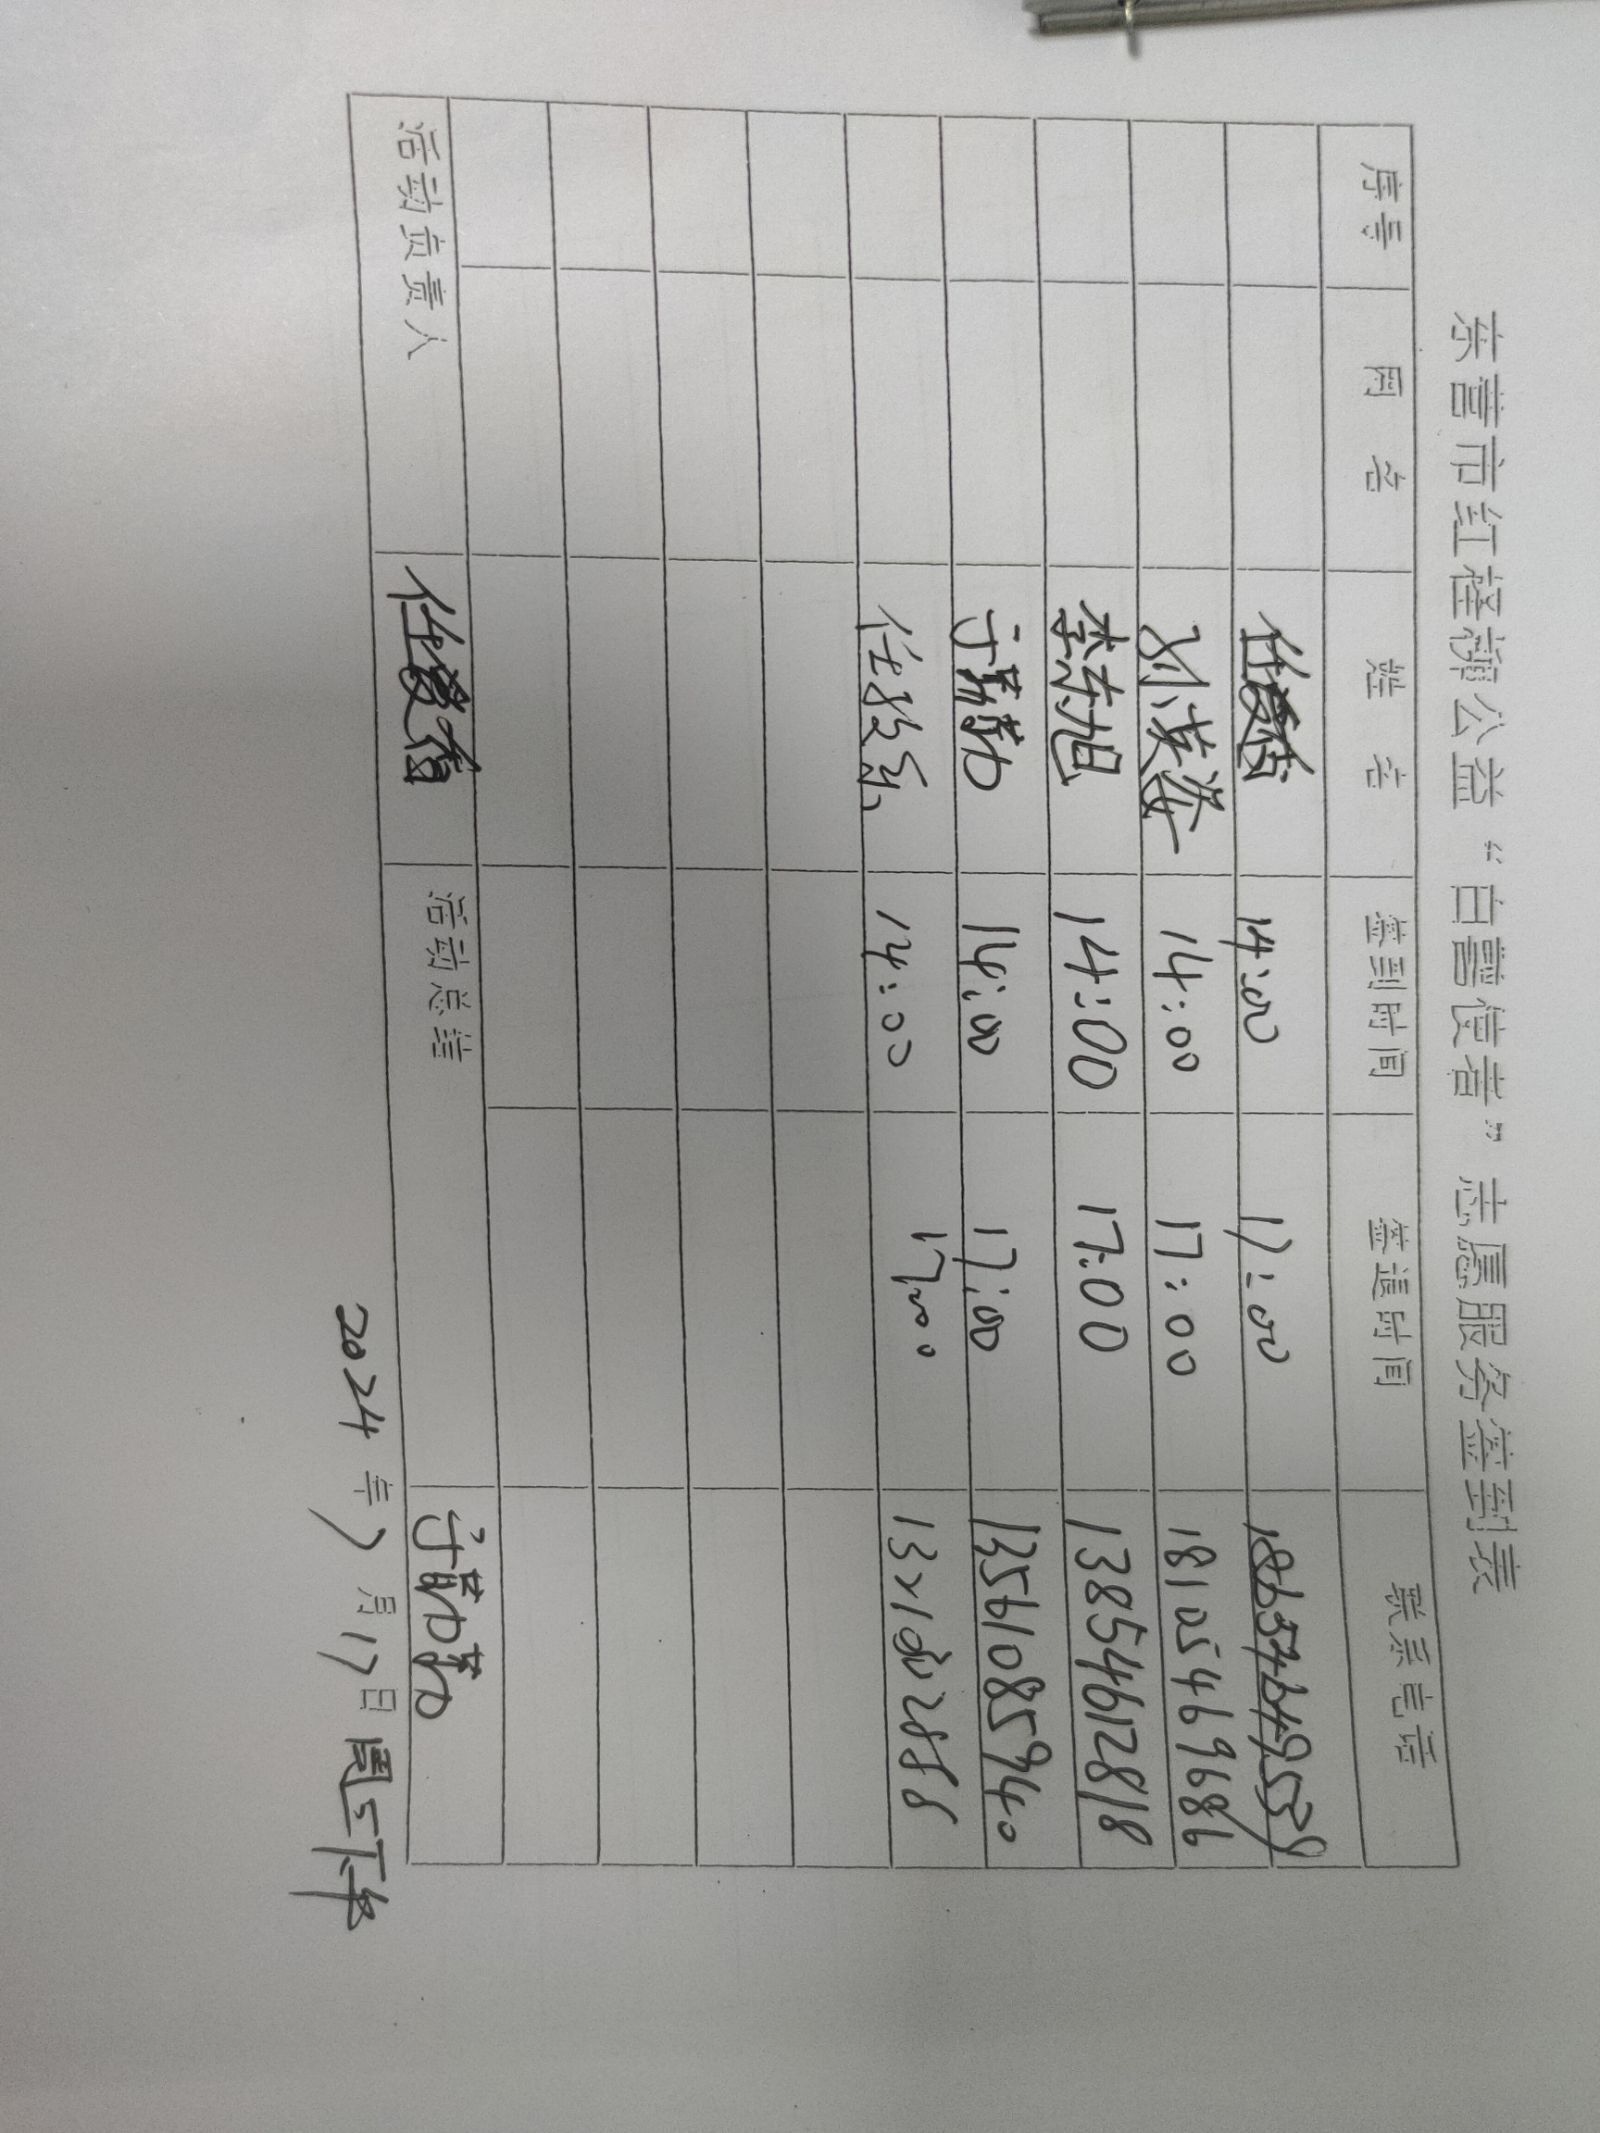 东营市红柽柳公益“白鹭使者”志愿服务签到表
序号 网 名 姓 名 签到时间 签退时间 联系电话
14:00 17:00
刘英 14:00 17:00 18105469686
李东旭 14:00 17:00 13854612818
于勤 14:00 17:00 13561085940
任 14:00 17:00
活动责任人 任 活动总结
2024年7月17日 周三下午